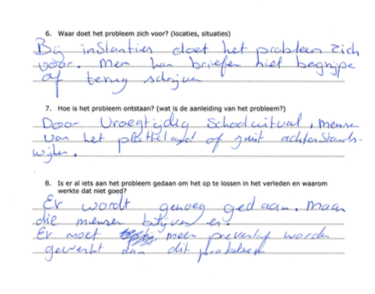 6. Waar doet het probleem zich voor? (locaties, situaties)
Bij instanties doet het probleem zich
voor. Men kan briefen niet begrijpe
of terug schrijven
7. Hoe is het probleem ontstaan? (wat is de aanleiding van het probleem?)
Door Vroegtijdig Schooluitval, mense
van het platteland of uit achterstands
wijken.
8. Is er al iets aan het probleem gedaan om het op te lossen in het verleden en waarom
werkte dat niet goed?
Er wordt genoeg gedaan. Maar
die mensen blijven er.
Er moet meer preventief worden
gewerkt aan dit probleem